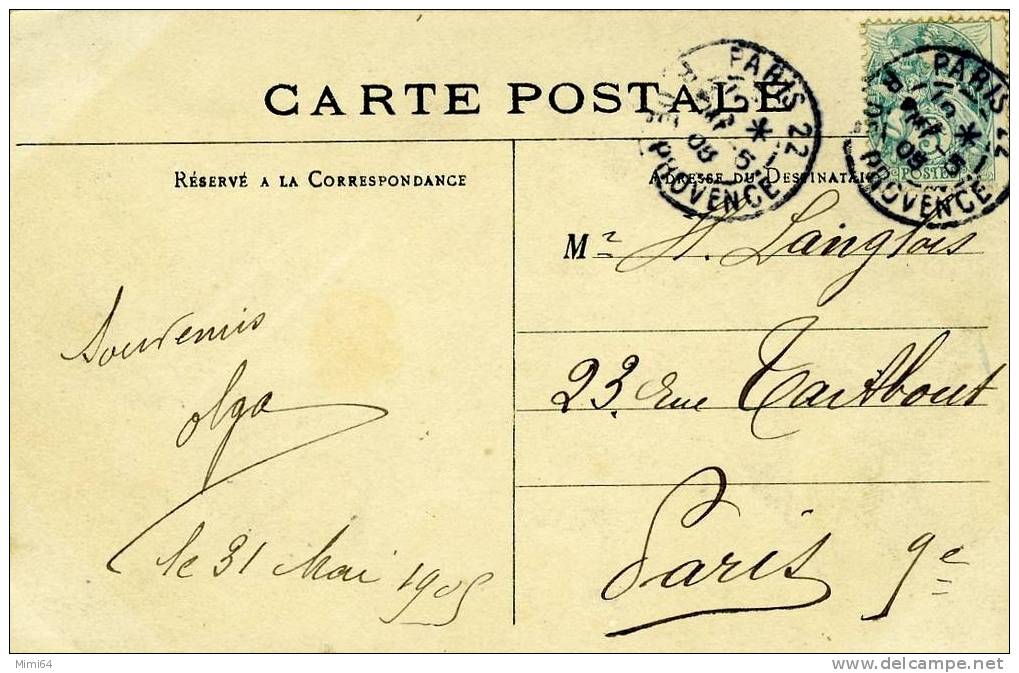 CARTE POSTALE
RÉSERVÉ A LA CORRESPONDANCE
ADRESSE DU DESTINATAIRE
PARIS 22
PROVENCE
PARIS 22
PROVENCE
POSTES
M^r H. Langlois
23. rue Taitbout
Paris 9^e
Souvenirs
Olga
le 31 Mai 1905
Mimi64
http://www.delcampe.net